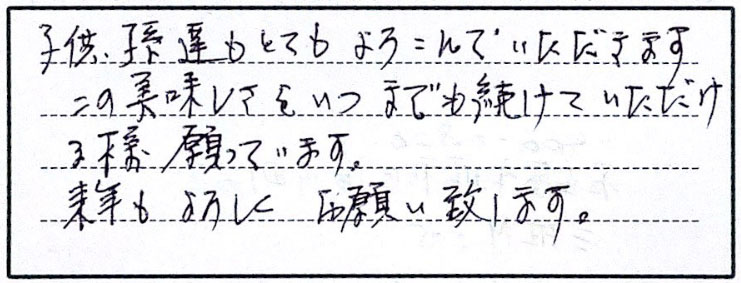 子供、孫達もとてもよろこんでいただきます
この美味しさをいつまでも続けていただけ
る様願っています。
来年もよろしくお願い致します。